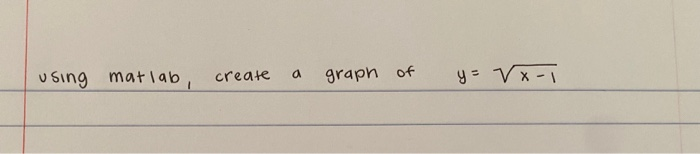 using matlab, create a graph of y = √x-1